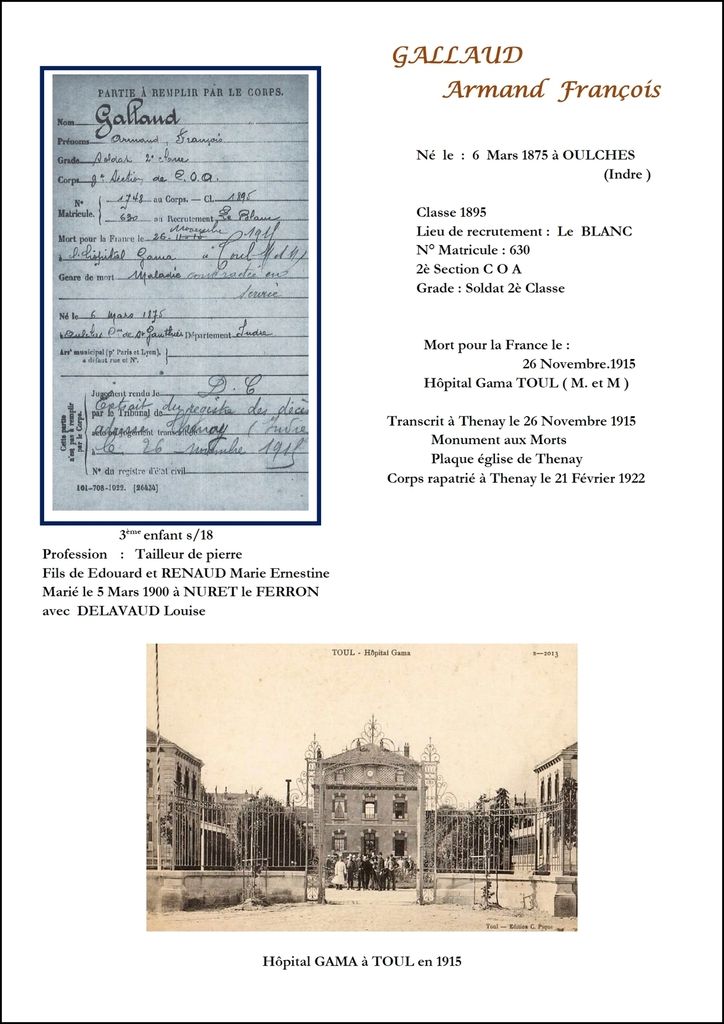 GALLAUD
Armand François
PARTIE À REMPLIR PAR LE CORPS.
Nom Gallaud
Prénoms Armand François
Grade Soldat 2e Classe
Corps Section de C.O.A.
N° Matricule. { 1748 au Corps. — Cl. 1895
630 au Recrutement Le Blanc
Mort pour la France le 26 Novembre 1915
à l'hôpital Gama à Toul M et M
Genre de mort Maladie contractée en
service
Né le 6 mars 1875
à Oulches Con de St Gaultier Département Indre
Arrt municipal (pr Paris et Lyon),
à défaut rue et N°.
Cette partie n'est pas à remplir par le Corps.
Jugement rendu le D. C
par le Tribunal de Extrait du registre des décès
acte ou jugement transcrit adressé Thenay (Indre)
le 26 novembre 1915
N° du registre d'état civil
101-708-1922. [26434]
Né le : 6 Mars 1875 à OULCHES
(Indre )
Classe 1895
Lieu de recrutement : Le BLANC
N° Matricule : 630
2è Section C O A
Grade : Soldat 2è Classe
Mort pour la France le :
26 Novembre.1915
Hôpital Gama TOUL ( M. et M )
Transcrit à Thenay le 26 Novembre 1915
Monument aux Morts
Plaque église de Thenay
Corps rapatrié à Thenay le 21 Février 1922
3ème enfant s/18
Profession : Tailleur de pierre
Fils de Edouard et RENAUD Marie Ernestine
Marié le 5 Mars 1900 à NURET le FERRON
avec DELAVAUD Louise
TOUL - Hôpital Gama
2—2013
Toul — Edition C. 
Hôpital GAMA à TOUL en 1915